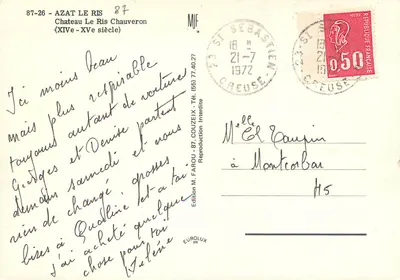 87-26 - AZAT LE RIS
87
Chateau Le Ris Chauveron
(XIVe - XVe siècle)
MF
Ici moins beau
mais plus respirable
toujours autant de voitures
Georges et Denise partent
demain samedi et nous
rien de changé grosses
bises à et à toi
j'ai acheté quelque
chose pour toi
Hélène
Edition M. FAROU - 87. COUZEIX - Tél. (55) 77.40.27
Reproduction Interdite
EUROLUX
23 ST SEBASTIEN
18 H
21-7
1972
CREUSE
23 ST
21
19
CREUSE
REPUBLIQUE FRANÇAISE
0,50
Melle
à